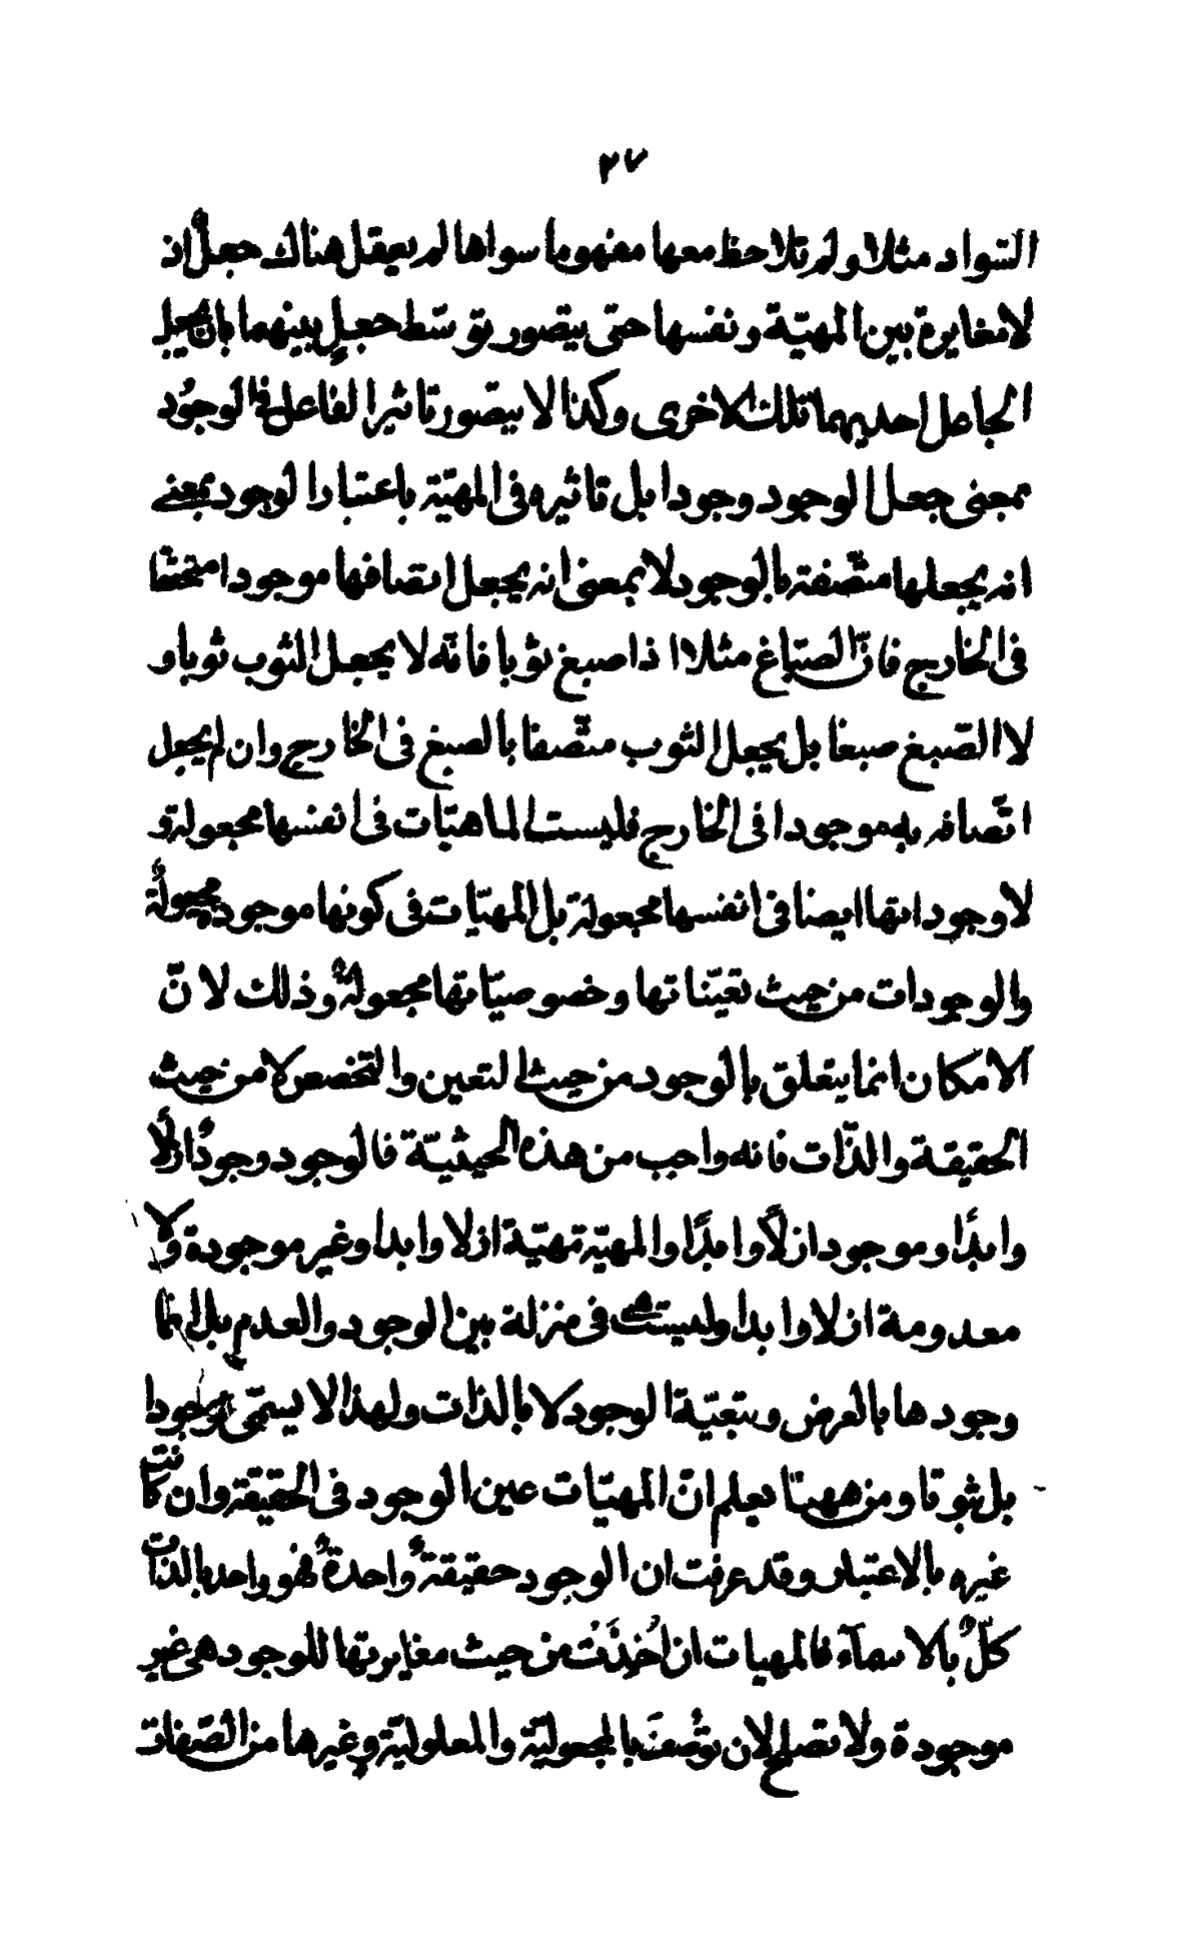 ٢٧
السّواد مثلا ولم تلاحظ معها مفهوما سواها لم يعقل هناك جعلٌ اذ
لا مغايرة بين المهيّة ونفسها حتى يتصور توسّط جعلٍ بينهما بان يجعل
الجاعل احديهما تلك الاخرى وكذا لا يتصور تاثير الفاعل فى الوجود
بمعنى جعل الوجود وجودا بل تاثيره فى المهيّة باعتبار الوجود بمعنى
انه يجعلها متّصفة بالوجود لا بمعنى انه يجعل اتصافها موجودا متحققا
فى الخارج فانّ الصبّاغ مثلا اذا صبغ ثوبا فانّه لا يجعل الثوب ثوبا و
لا الصّبغ صبغا بل يجعل الثوب متّصفا بالصبغ فى الخارج وان لم يجعل
اتّصافه به موجودا فى الخارج فليست الماهيّات فى انفسها مجعولة و
لا وجوداتها ايضا فى انفسها مجعولة بل المهيّات فى كونها موجودة مجعولةٌ
والوجودات من حيث تعيّناتها وخصوصيّاتها مجعولةٌ وذلك لانّ
الامكان انما يتعلق بالوجود من حيث التعين والتخصص لا من حيث
الحقيقة والذّات فانه واجب من هذه الحيثيّة فالوجود وجودٌ ازلًا
وابدًا وموجود ازلًا وابدًا والمهيّة مهيّة ازلا وابدا وغير موجودة ولا
معدومة ازلا وابدا وليست هى فى منزلة بين الوجود والعدم بل انما
وجودها بالعرض وبتبعيّة الوجود لا بالذات ولهذا لا يسمّى موجودا
بل ثبوتا ومن ههنا يعلم انّ المهيّات عين الوجود فى الحقيقة وان كانت
غيره بالاعتبار وقد عرفت ان الوجود حقيقةٌ واحدةٌ فهو واحد بالذات
كلٌّ بالاسمآء فالمهيات ان اُخِذَتْ من حيث مغايرتها للوجود هى غير
موجودة ولا تصلح لان توُصَف بالمجعوليّة والمعلوليّة وغيرها من الصّفات